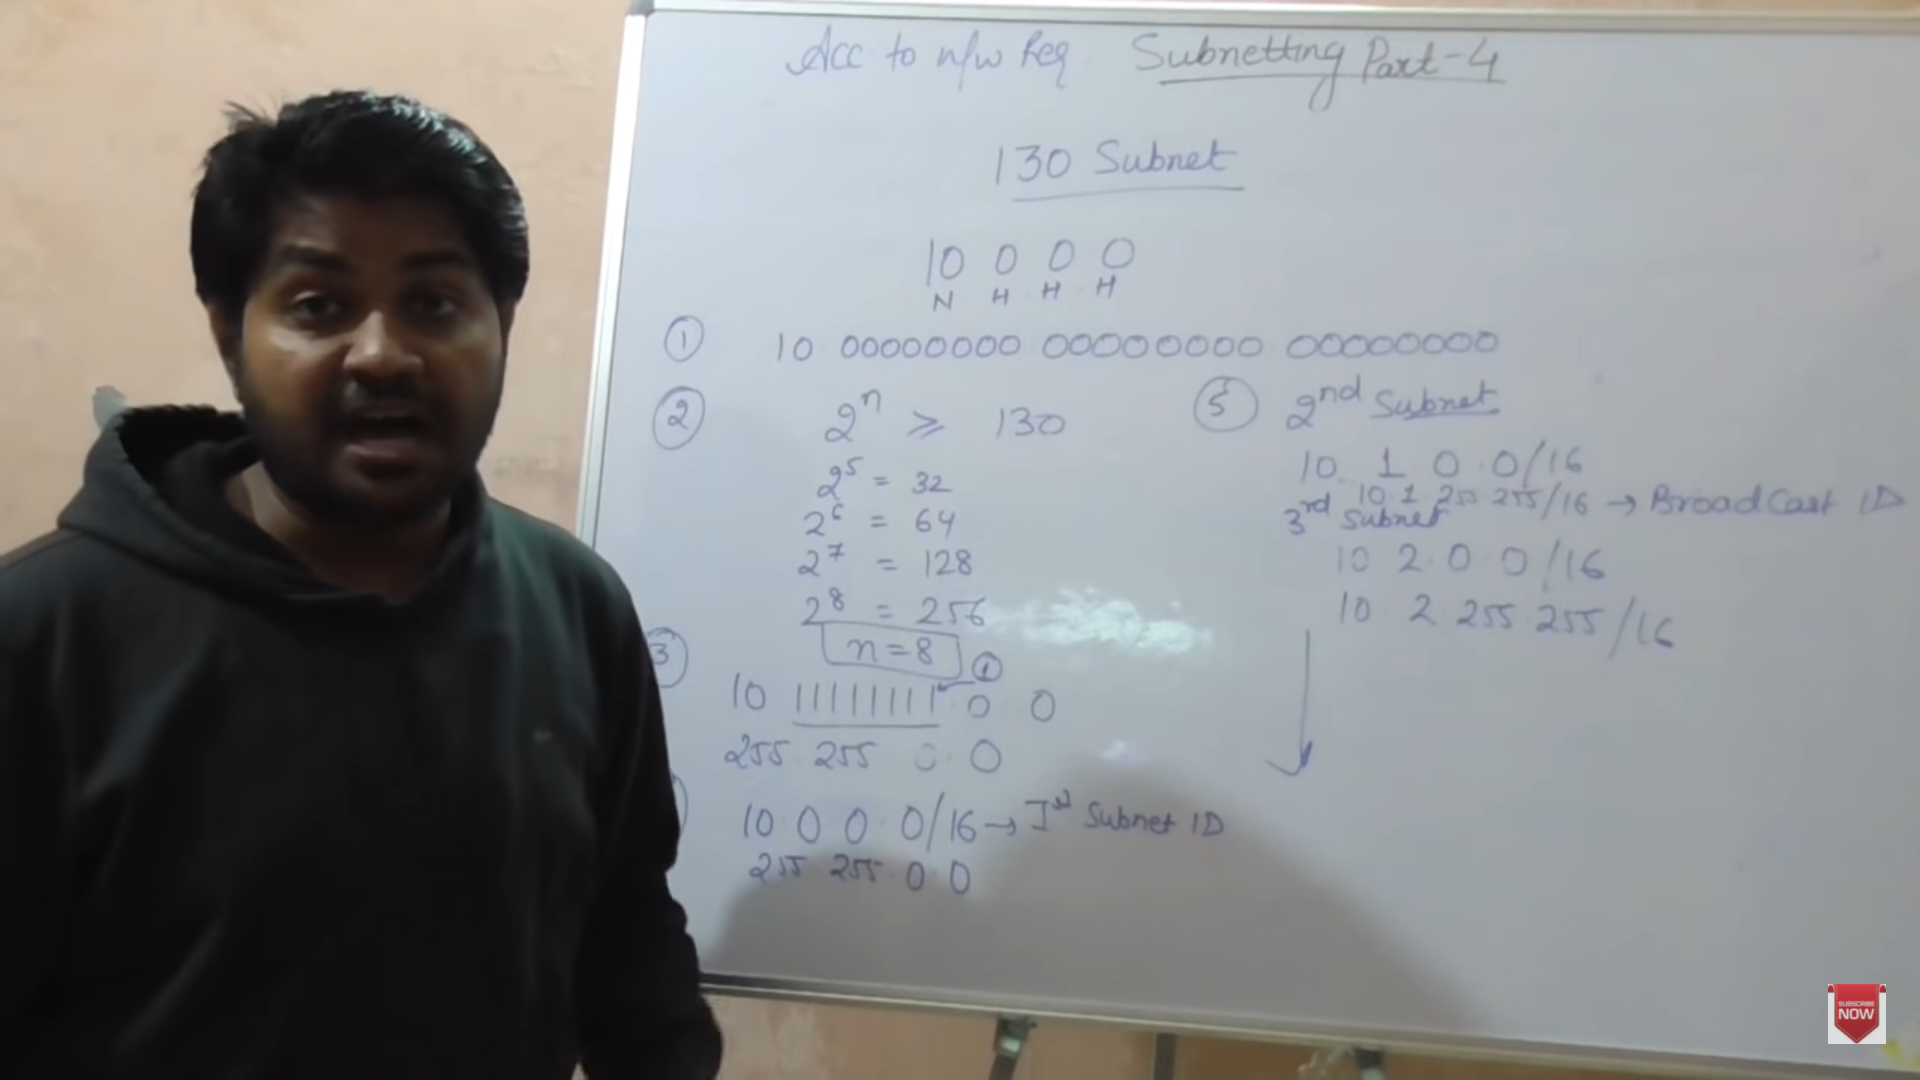 Acc to n/w Req. Subnetting Part-4
130 Subnet
10 0 0 0
N H H H
① 10 00000000 00000000 00000000
② 2ⁿ ≥ 130
2⁵ = 32
2⁶ = 64
2⁷ = 128
2⁸ = 256
n=8
③ 10 11111111 0 0
①
255 255 0 0
10 0 0 0/16 → Ist Subnet ID
255 255 0 0
⑤ 2nd Subnet
10 1 0 0/16
10 1 255 255/16 → BroadCast ID
3rd Subnet
10 2 0 0/16
10 2 255 255/16
SUBSCRIBE
NOW